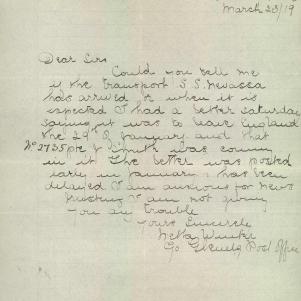 March 23/19
Dear Sir
Could you tell me
if the transport S.S. Nevassa
has arrived or when it is
expected I had a letter Saturday
saying it was to leave England
the 29th of January and that
No 2735 Pte J Smith was coming
in it The letter was posted
early in January & has been
delayed I am anxious for news
Trusting I am not giving
you any trouble
Yours Sincerely
Netta
Post Office